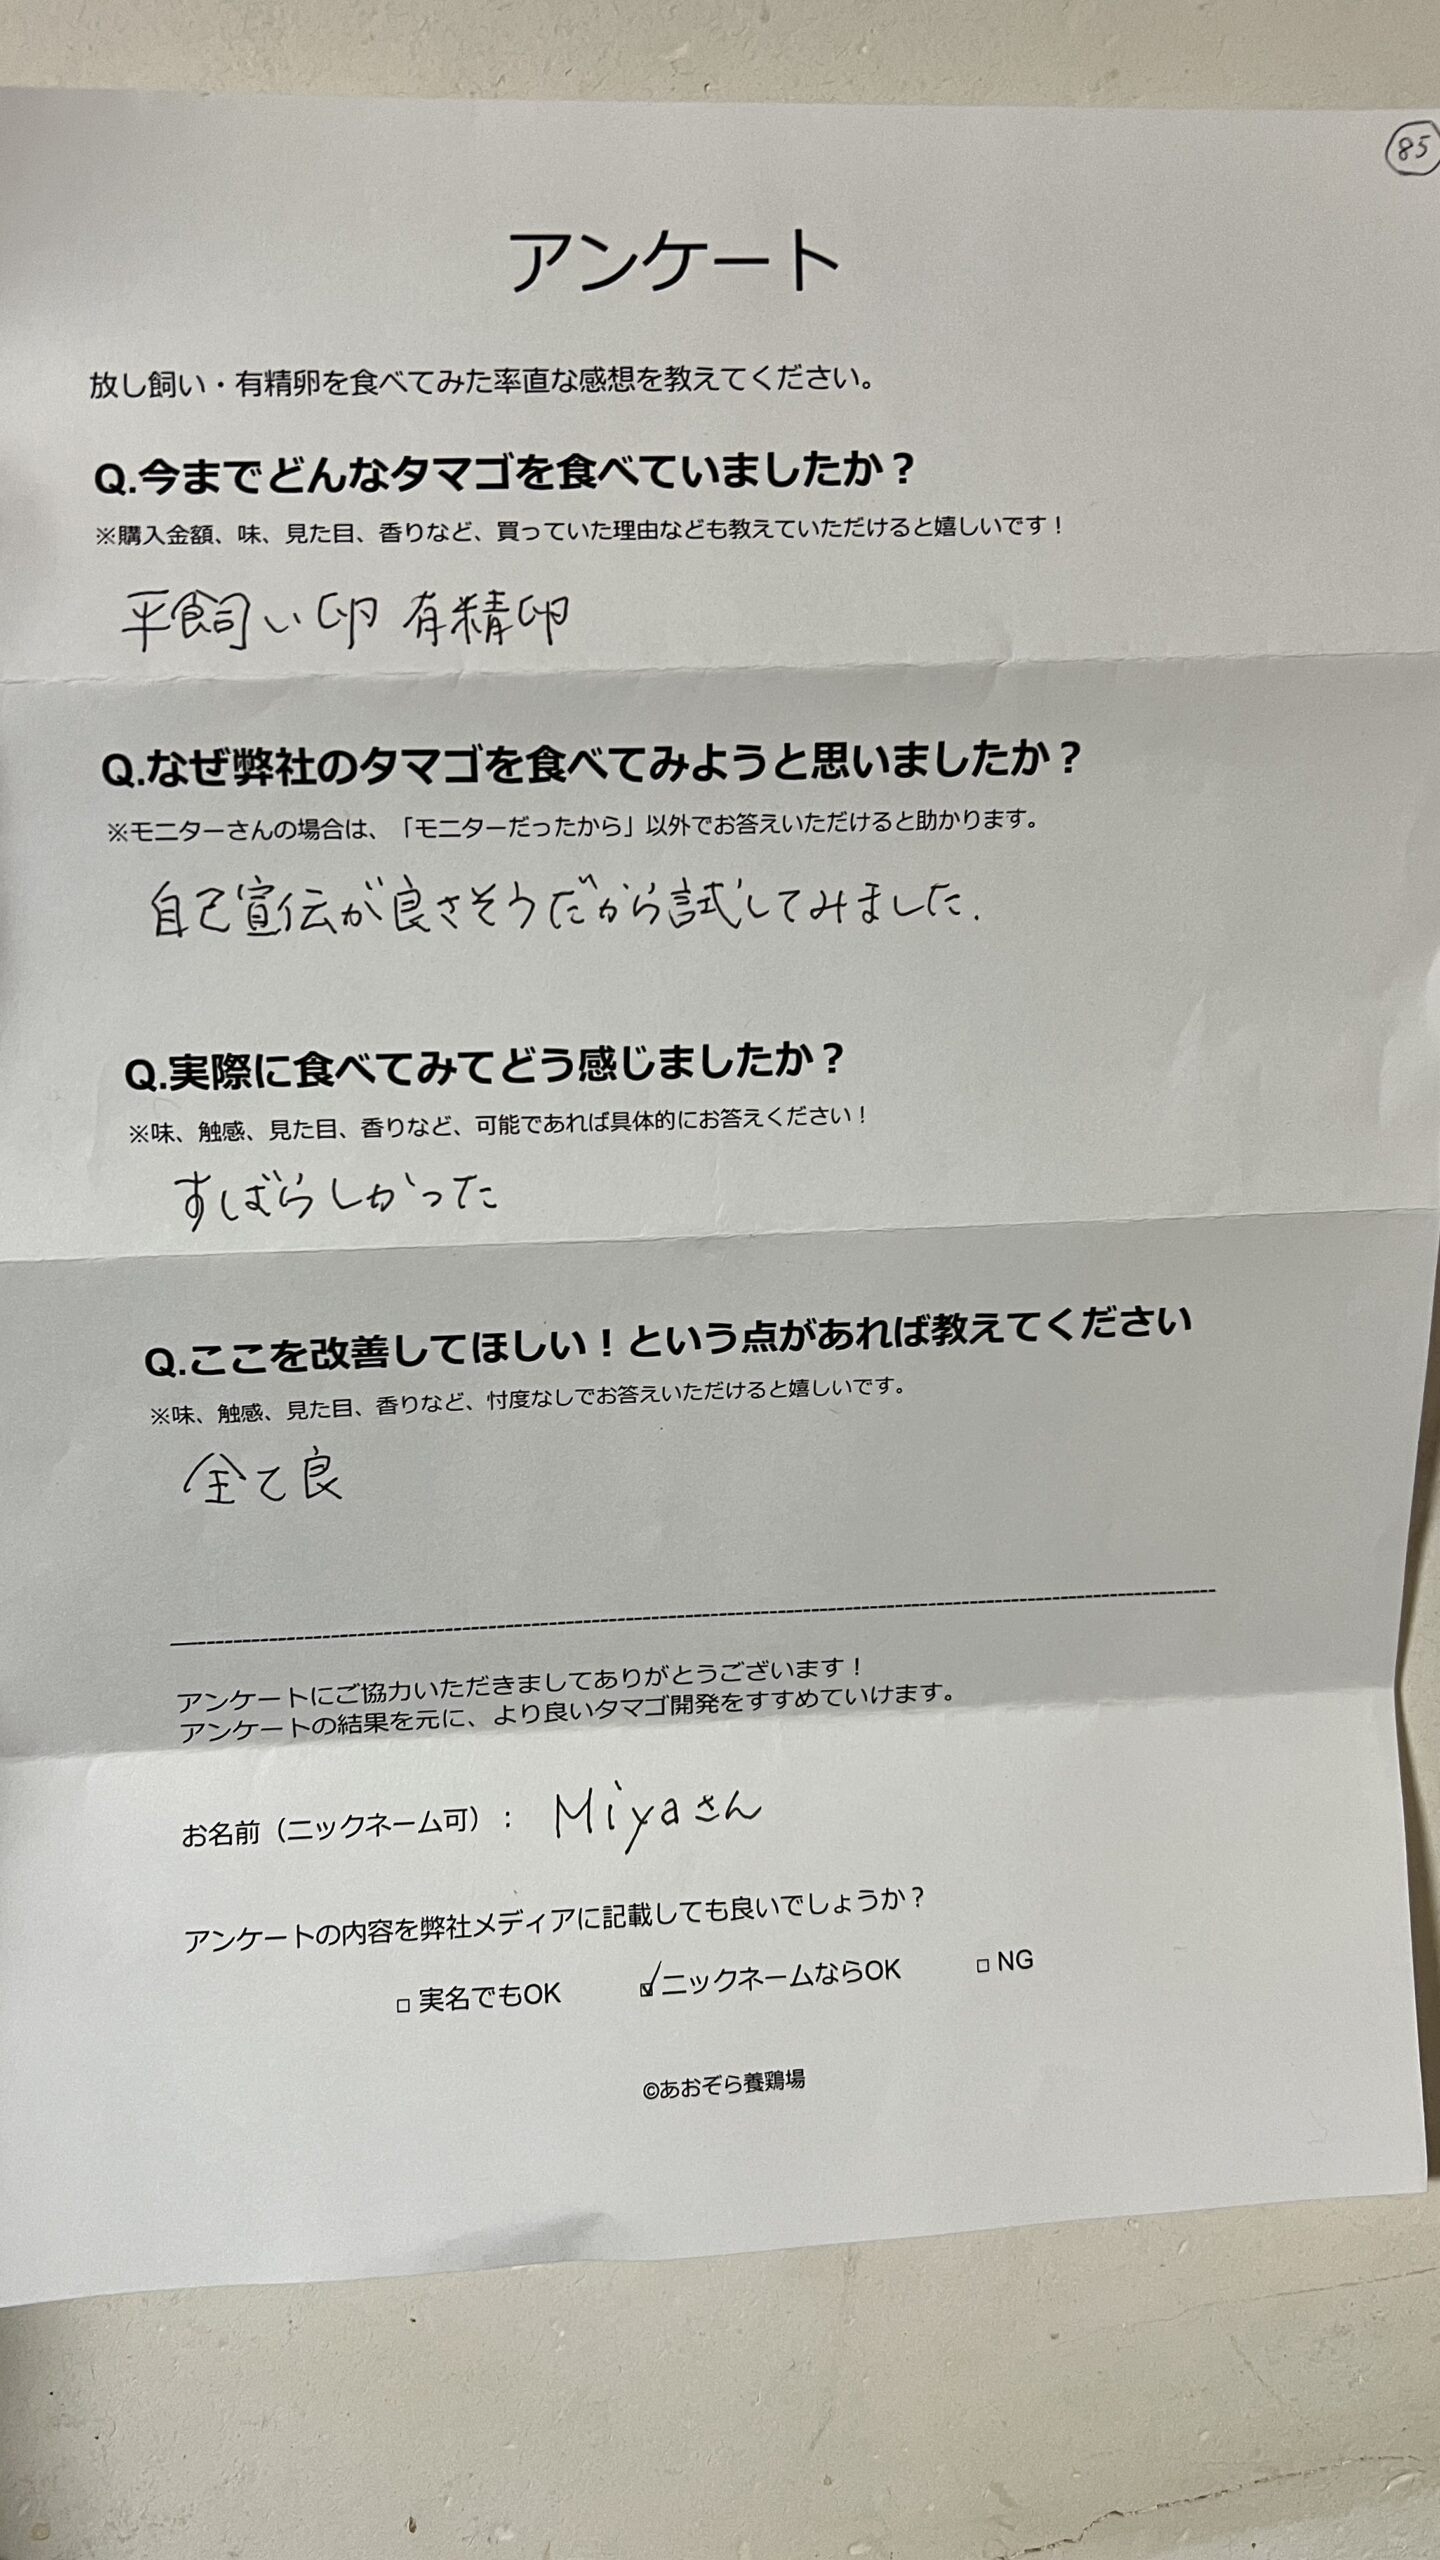 85
アンケート
放し飼い・有精卵を食べてみた率直な感想を教えてください。
Q.今までどんなタマゴを食べていましたか？
※購入金額、味、見た目、香りなど、買っていた理由なども教えていただけると嬉しいです！
平飼い卵 有精卵
Q.なぜ弊社のタマゴを食べてみようと思いましたか？
※モニターさんの場合は、「モニターだったから」以外でお答えいただけると助かります。
自己宣伝が良さそうだから試してみました.
Q.実際に食べてみてどう感じましたか？
※味、触感、見た目、香りなど、可能であれば具体的にお答えください！
すばらしかった
Q.ここを改善してほしい！という点があれば教えてください
※味、触感、見た目、香りなど、忖度なしでお答えいただけると嬉しいです。
全て良
アンケートにご協力いただきましてありがとうございます！
アンケートの結果を元に、より良いタマゴ開発をすすめていけます。
お名前（ニックネーム可）： Miyaさん
アンケートの内容を弊社メディアに記載しても良いでしょうか？
□ 実名でもOK ☑ ニックネームならOK □ NG
©あおぞら養鶏場